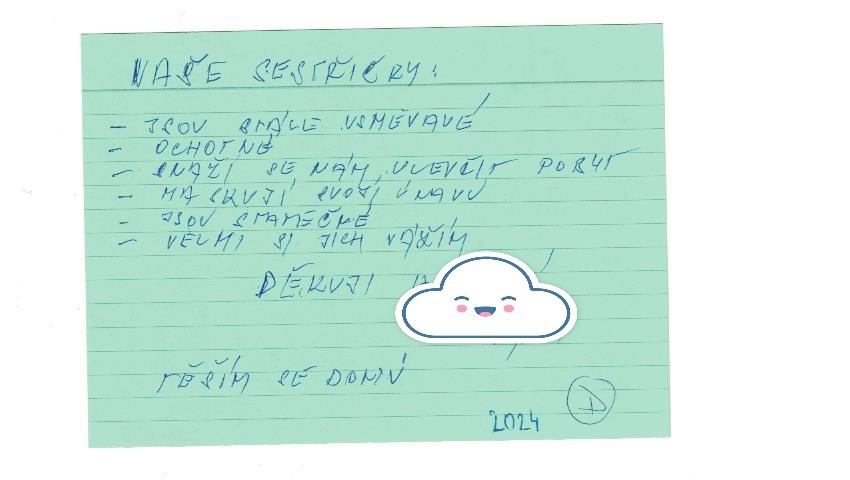 NAŠE SESTŘIČKY:
- JSOU STÁLE USMĚVAVÉ
- OCHOTNÉ
- SNAŽÍ SE NÁM ULEVČIT POBYT
- MASKUJÍ SVOJÍ ÚNAVU
- JSOU STATEČNÉ
- VELMI SI JICH VÁŽÍM
DĚKUJI
TĚŠÍM SE DOMŮ
D
2024